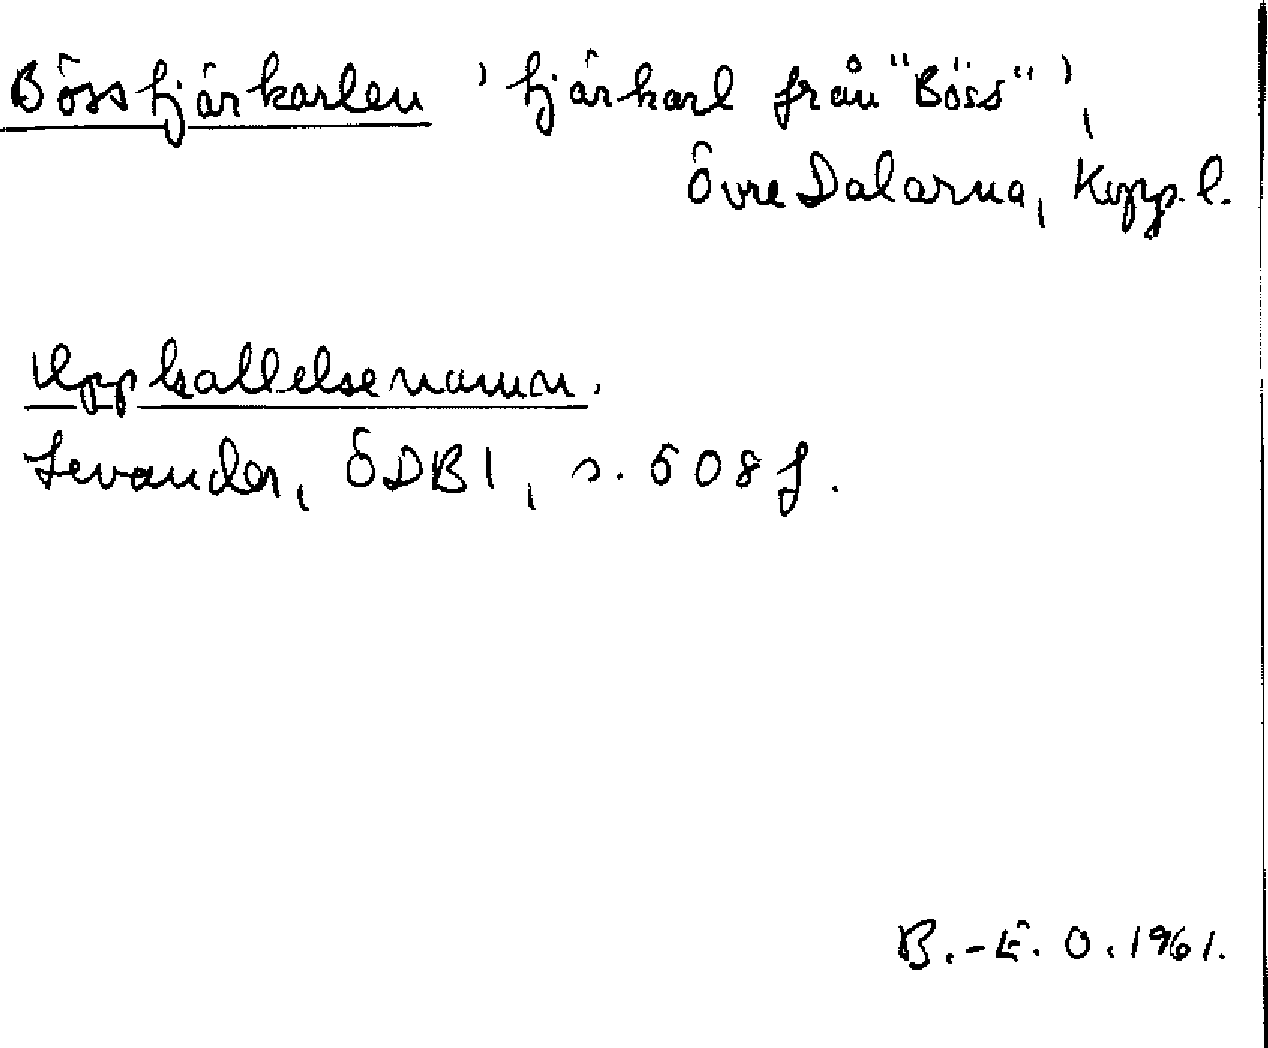 Bösstjärkarlen 'tjärkarl från "Böss"',
Övre Dalarna, Kopp. l.
Uppkallelsenamn.
Levander, ÖDB I, s. 508 f.
B.-E. O. 1961.